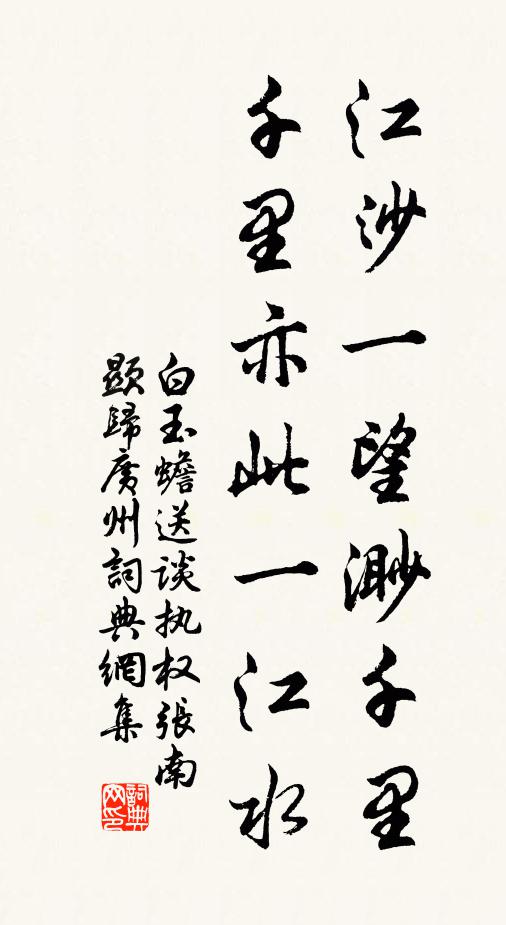 江沙一望渺千里
千里亦此一江水
白玉蟾送谈执权張南
顯歸廣州詞典網集
詞典
网印